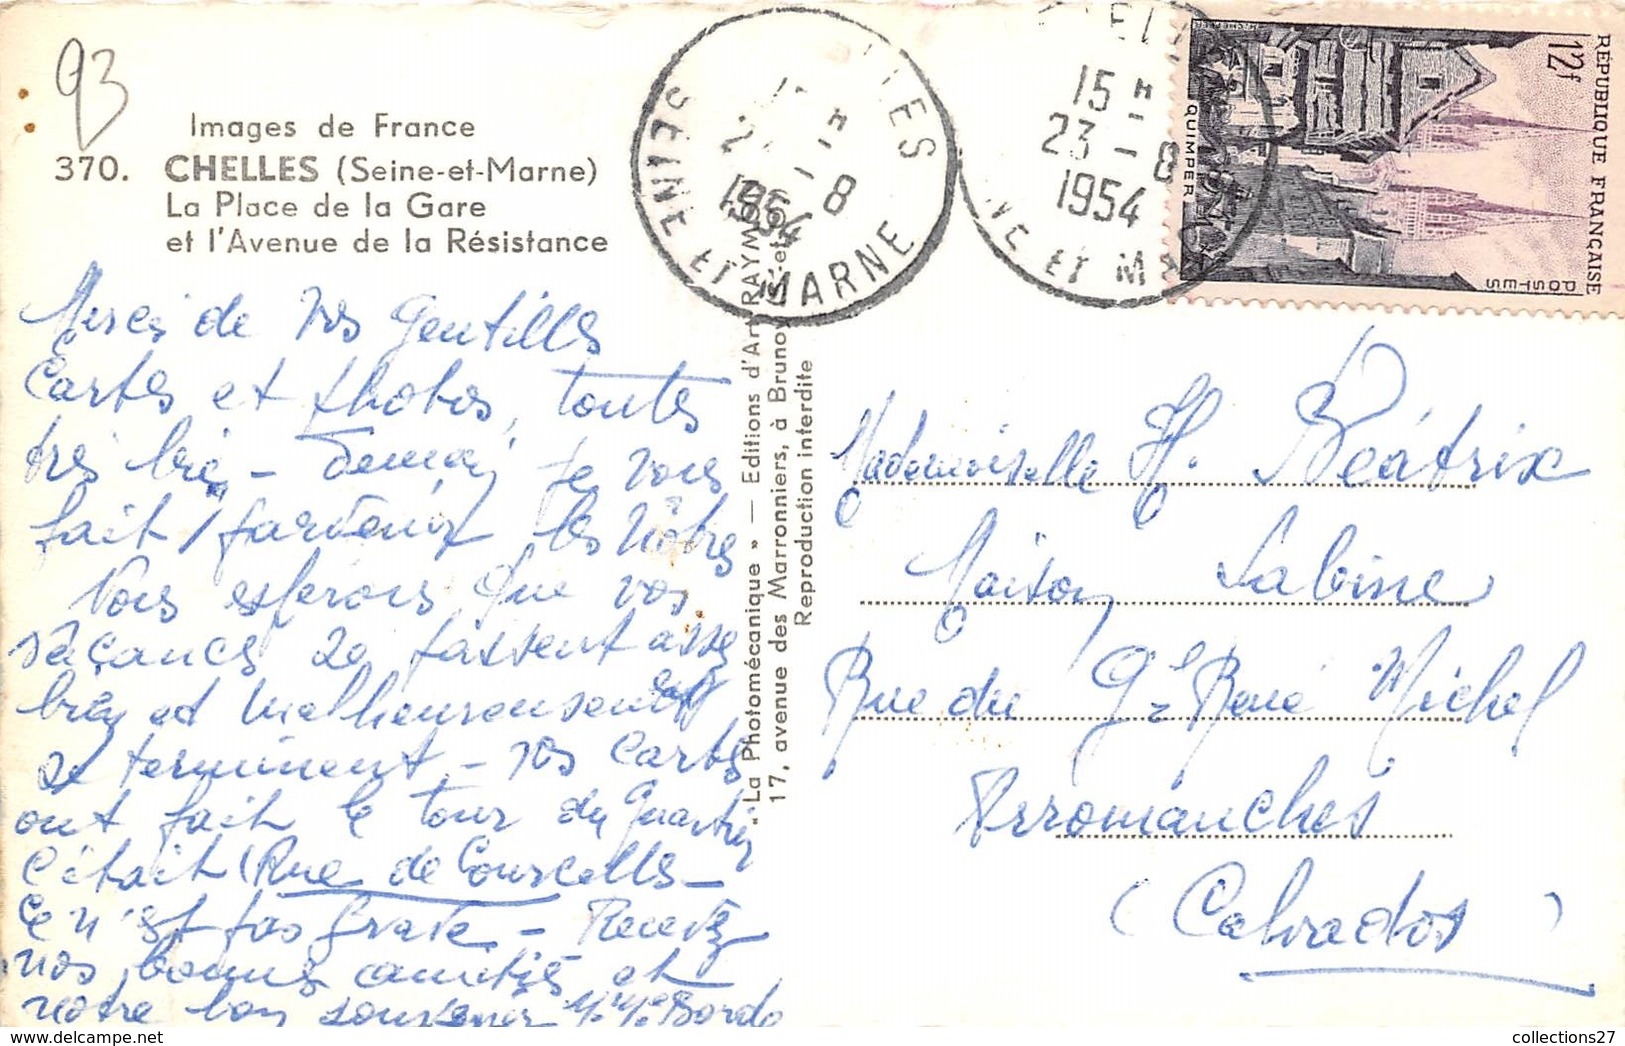 93
Images de France
370. CHELLES (Seine-et-Marne)
La Place de la Gare
et l'Avenue de la Résistance
Merci de vos gentilles
Cartes et photos, toutes
très bien - Demain je vous
fait parvenir les nôtres
Nous esperons que vos
vacances se passent assez
bien et malheureusement
se terminent - vos Cartes
ont fait le tour du quartier
c'était Rue de Courcelles -
Ce n'est pas grave - Recevez
nos bonnes amitiés et
notre bon souvenir
"La Photomécanique" — Editions d'Art RAYM
17, avenue des Marronniers, à Brunoy
Reproduction interdite
SEINE ET MARNE
1954
15 H
23 - 8
1954
RÉPUBLIQUE FRANÇAISE
POSTES
12f
QUIMPER
Mademoiselle H. Béatrix
Maison Sabine
Rue du Gal René Michel
Arromanches
(Calvados)
collections27